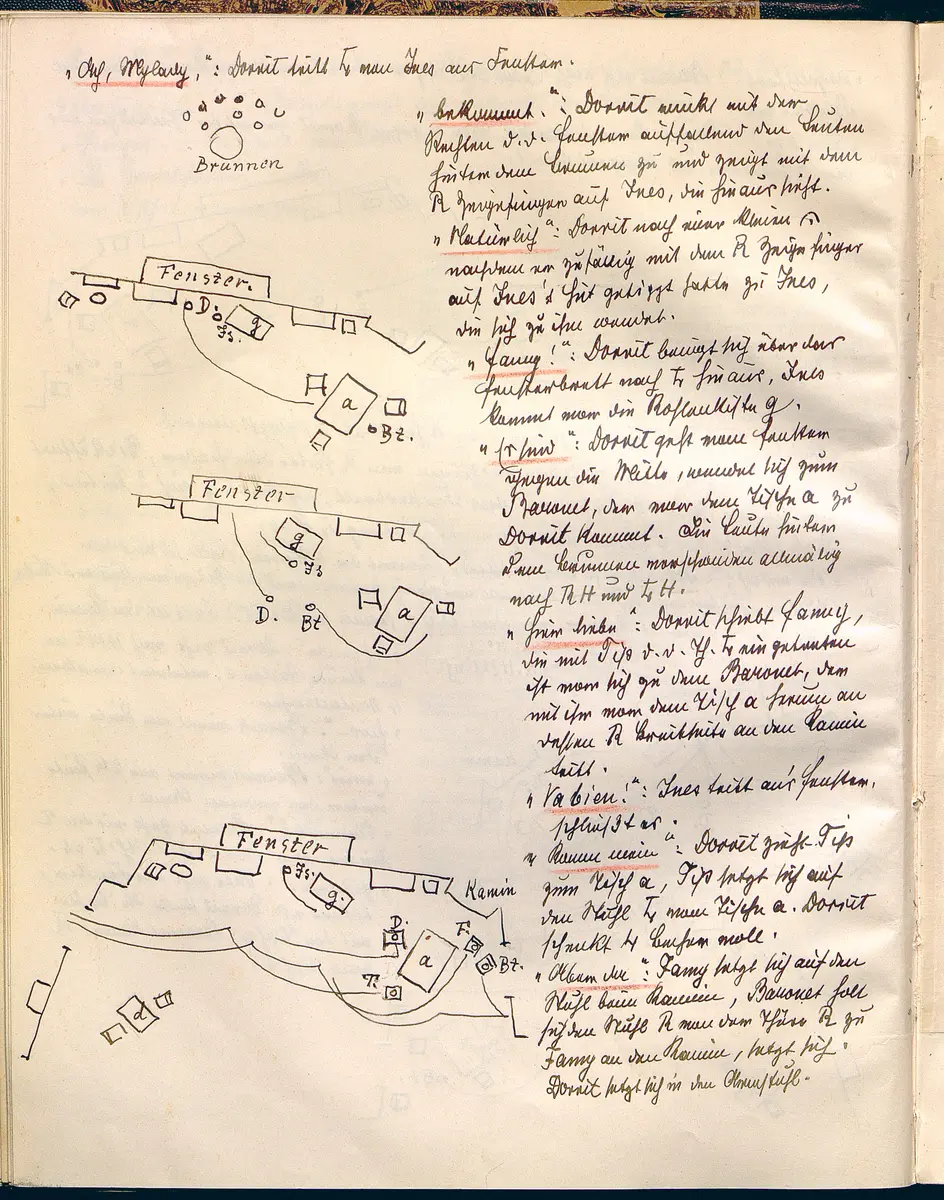 „Ach, Mylady,“: Dorrit tritt L von Ines ans Fenster.
Brunnen
„bekommt.“: Dorrit winkt mit der
Rechten d.d. Fenster auffallend den Leuten
hinter dem Brunnen zu und zeigt mit dem
R Zeigefinger auf Ines, die hinaus sieht.
„Natürlich“: Dorrit nach einer kleinen
nachdem er zufällig mit dem R Zeigefinger
auf Ines's Hut getippt hatte zu Ines,
die sich zu ihm wendet.
„Fanny!“: Dorrit beugt sich über das
Fensterbrett nach L hinaus, Ines
kommt vor die Kohlenkiste g.
„Er sind“: Dorrit geht vom Fenster
gegen die Mitte, wendet sich zum
Baronet, der vor dem Tische a zu
Dorrit kommt. Die Leute hinter
dem Brunnen verschwinden allmälig
nach R H und L H.
„Hier liebe“: Dorrit schiebt Fanny,
die mit Tip d.d. Th. L eingetreten
ist vor sich zu dem Baronet, der
mit ihr vor dem Tisch a herum an
dessen R Breitseite an den Kamin
tritt.
„Va bien!“: Ines tritt an's Fenster,
schließt es.
„Komm mein“: Dorrit zieht Tip
zum Tisch a, Tip setzt sich auf
den Stuhl L vom Tische a. Dorrit
schenkt Becher voll.
„Aber der“: Fany setzt sich auf den
Stuhl beim Kamin, Baronet holt
sich den Stuhl R von dem Thüre R zu
Fany an den Kamin, setzt sich.
Dorrit setzt sich in den Armstuhl.
Fenster.
D.
Is.
g
a
Bt.
Fenster
g
Is
D.
Bt
a
Fenster
Is.
g.
Kamin
D.
F.
a
Bt.
T.
d